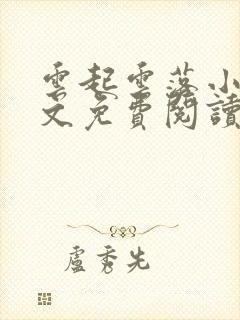 雲起雲落小
文免費閱讀
盧秀先